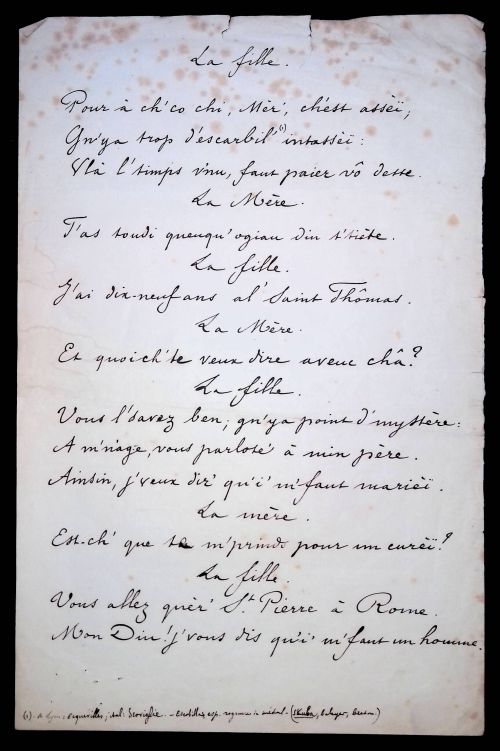 La fille.
Pour à ch'co chi, Mèr', ch'ést assèï,
Gn'ya trop d'escarbil' (1) intassèï :
V'là l'timps v'nu, faut paier vô dette.
La Mère.
T'as toudi queuqu'ogiau din t'tiète.
La fille.
J'ai dix-neuf ans al' Saint Thômas.
La Mère.
Et quoich'te veux dire aveuc châ ?
La fille.
Vous l'savez ben, gn'ya point d'mystère :
A m'n'age, vous parloté à min père.
Ainsin, j'veux dir' qu'i' m'faut marièï.
La mère.
Est-ch' que te m'prinds pour un curèï ?
La fille.
Vous allez quèr' St. Pierre à Rome.
Mon Diu ! j'vous dis qu'i' m'faut un homme.
(1) - A Lyon : ital: Scoviglie. -